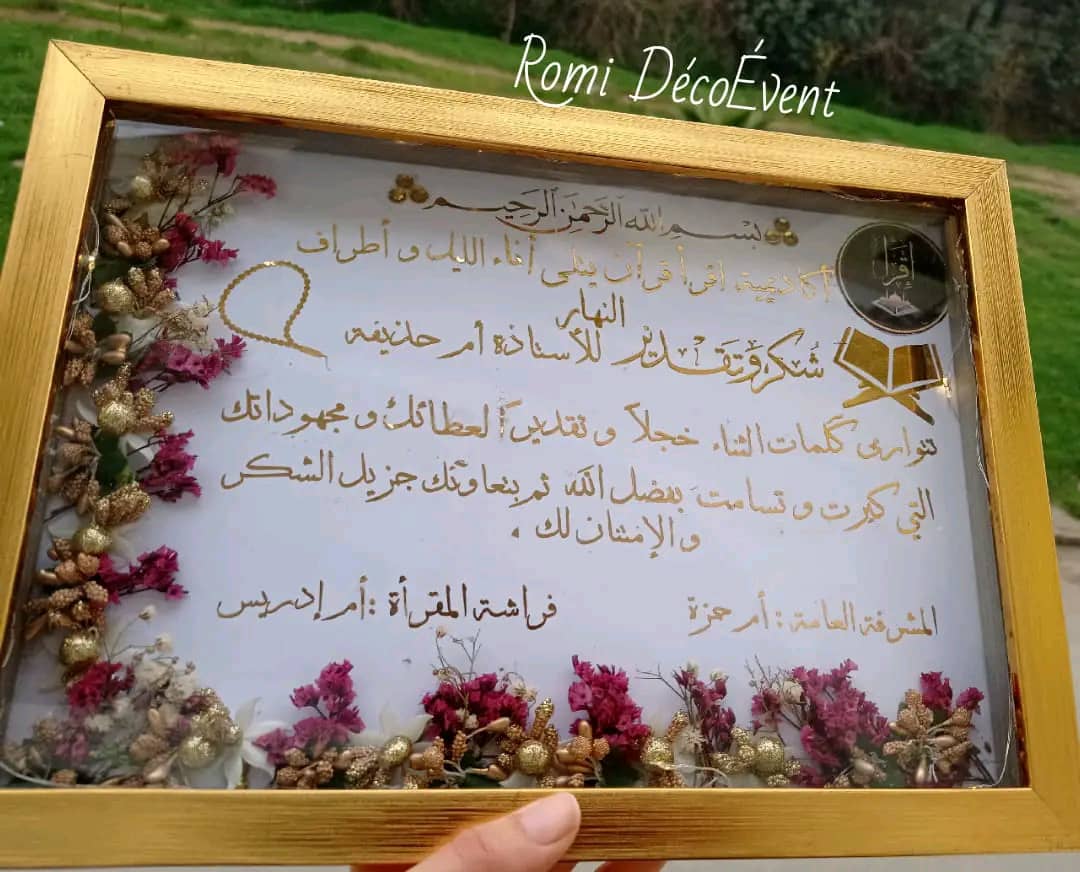 Romi DécoÉvent
بسم الله الرحمن الرحيم
اقرأ
أكاديمية اقرأ قرآن يتلى أناء الليل و أطراف
النهار
شكر وتقدير للأستاذة أم حذيفه
تتوارى كلمات الثناء خجلاً و تقديراً لعطائك و مجهوداتك
التي كبرت و تسامت بفضل الله ثم بتعاونك جزيل الشكر
و الإمتنان لك .
المشرفة العامة : أم حمزة
فراشة المقرأة : أم إدريس